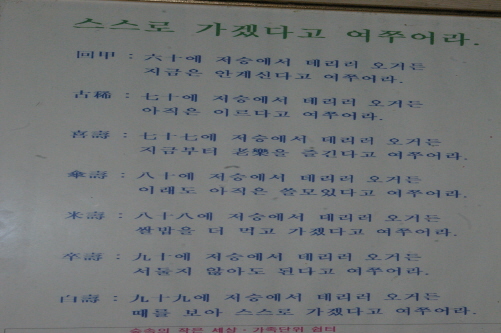 스스로 가겠다고 여쭈어라.
回甲 : 六十에 저승에서 데리러 오거든
지금은 안계신다고 여쭈어라.
古稀 : 七十에 저승에서 데리러 오거든
아직은 이르다고 여쭈어라.
喜壽 : 七十七에 저승에서 데리러 오거든
지금부터 老樂을 즐긴다고 여쭈어라.
傘壽 : 八十에 저승에서 데리러 오거든
이래도 아직은 쓸모있다고 여쭈어라.
米壽 : 八十八에 저승에서 데리러 오거든
쌀밥을 더 먹고 가겠다고 여쭈어라.
卒壽 : 九十에 저승에서 데리러 오거든
서둘지 않아도 된다고 여쭈어라.
白壽 : 九十九에 저승에서 데리러 오거든
때를 보아 스스로 가겠다고 여쭈어라.
숲속의 작은 세상 · 가족단위 쉼터